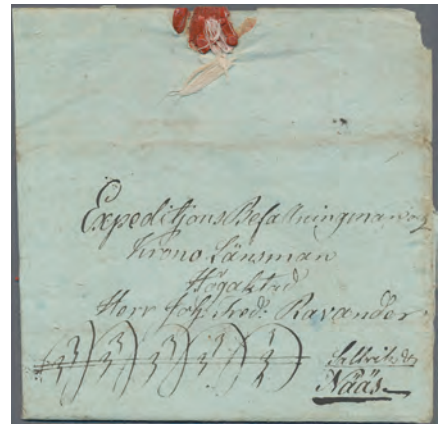 Expeditions Befallningman och
Krono Länsman
Högaktad
Herr Joh: Fred: Ravander
Nääs